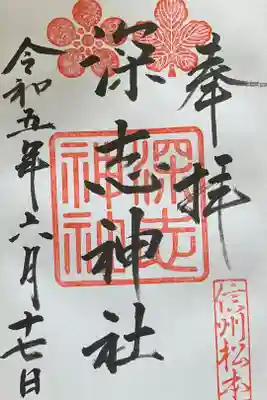 奉拝
信州松本
深志神社
深志神社
令和五年六月十七日